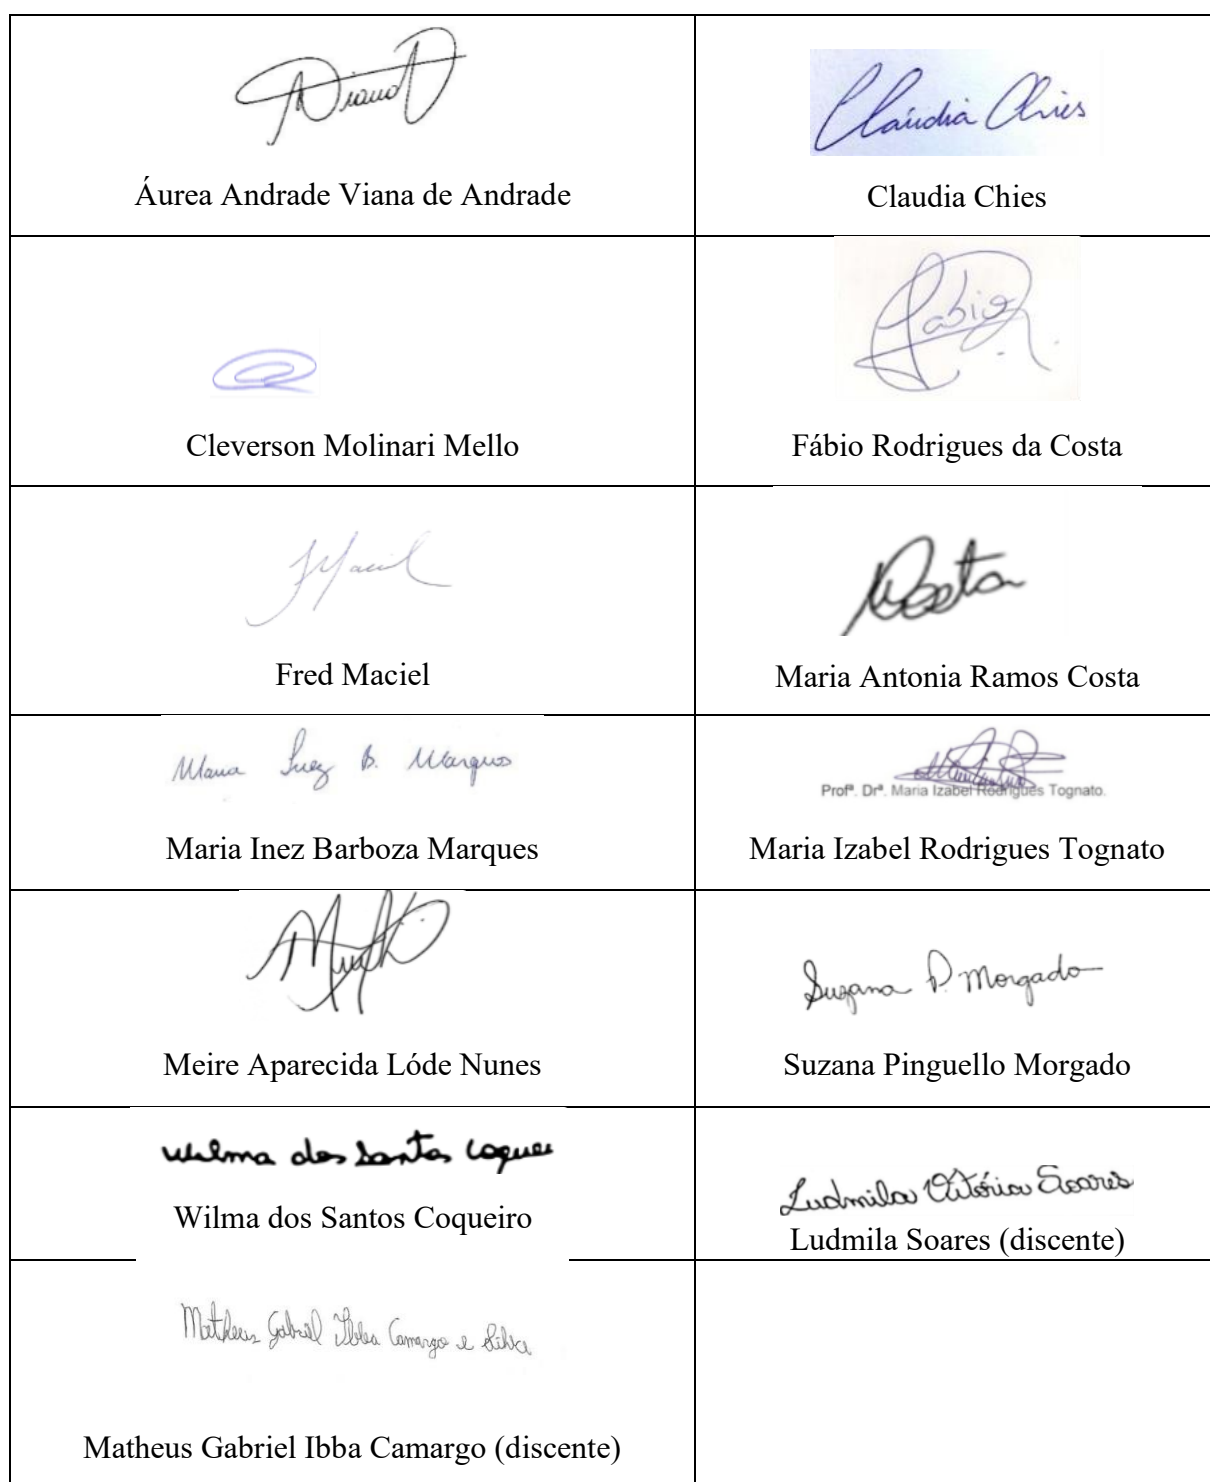 Viana
Áurea Andrade Viana de Andrade
Claudia Chies
Claudia Chies
Cleverson Molinari Mello
Fabio
Fábio Rodrigues da Costa
Maciel
Fred Maciel
Costa
Maria Antonia Ramos Costa
Maria Inez B. Marques
Maria Inez Barboza Marques
Profª. Drª. Maria Izabel Rodrigues Tognato.
Maria Izabel Rodrigues Tognato
Meire Aparecida Lóde Nunes
Suzana P. Morgado
Suzana Pinguello Morgado
Wilma dos Santos Coquei
Wilma dos Santos Coqueiro
Ludmila Vitória Soares
Ludmila Soares (discente)
Matheus Gabriel Ibba Camargo e Silva
Matheus Gabriel Ibba Camargo (discente)